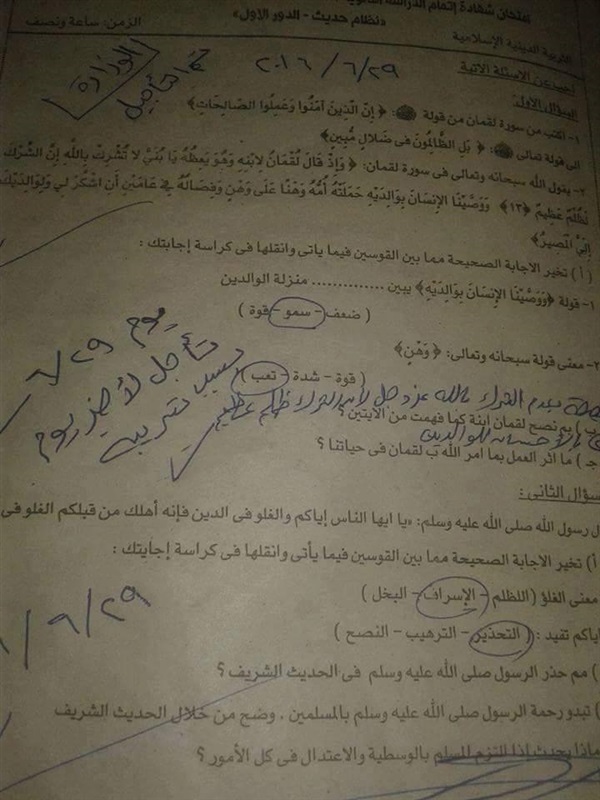 امتحان شهادة إتمام الدراسة الثانوية
«نظام حديث - الدور الأول»
التربية الدينية الإسلامية
الزمن: ساعة ونصف
أجب عن الاسئلة الآتية
٢٠١٦ / ٦ / ٢٩
تأجيل
الوزارة
السؤال الأول:
١- اكتب من سورة لقمان من قولة : ﴿ إِنَّ الَّذِينَ آمَنُوا وَعَمِلُوا الصَّالِحَاتِ﴾
الى قولة تعالى ﴿ بَلِ الظَّالِمُونَ فِى ضَلَالٍ مُّبِينٍ﴾
٢- يقول الله سبحانه وتعالى فى سورة لقمان: ﴿ وَإِذْ قَالَ لُقْمَانُ لِابْنِهِ وَهُوَ يَعِظُهُ يَا بُنَيَّ لَا تُشْرِكْ بِاللَّهِ إِنَّ الشِّرْكَ
لَظُلْمٌ عَظِيمٌ ﴿١٣﴾ وَوَصَّيْنَا الْإِنسَانَ بِوَالِدَيْهِ حَمَلَتْهُ أُمُّهُ وَهْنًا عَلَى وَهْنٍ وَفِصَالُهُ فِي عَامَيْنِ أَنِ اشْكُرْ لِي وَلِوَالِدَيْكَ
إِلَيَّ الْمَصِيرُ﴾
( أ ) تخير الاجابة الصحيحة مما بين القوسين فيما يأتى وانقلها فى كراسة إجابتك :
١- قولة ﴿وَوَصَّيْنَا الْإِنسَانَ بِوَالِدَيْهِ﴾ يبين .............. منزلة الوالدين
( ضعف - سمو - قوة )
يوم ٦/٢٩
٢- معنى قولة سبحانه وتعالى: ﴿ وَهْنٍ﴾
( قوة - شدة - تعب )
تأجل لأخر يوم
بسبب تسريبه
بعدم الشرك بالله عز وجل لأن الشرك ظلم عظيم
ب ) بم نصح لقمان ابنة كما فهمت من الآيتين ؟
الإحسان للوالدين
جـ ) ما اثر العمل بما امر الله ب لقمان فى حياتنا ؟
السؤال الثانى :
قال رسول الله صلى الله عليه وسلم: «يا ايها الناس إياكم والغلو فى الدين فإنه أهلك من قبلكم الغلو فى
أ) تخير الاجابة الصحيحة مما بين القوسين فيما يأتى وانقلها فى كراسة إجابتك :
معنى الغلو (اللظلم - الإسراف - البخل )
إياكم تفيد : ( التحذير - الترهيب - النصح )
/ ٦ / ٢٩
) مم حذر الرسول صلى الله عليه وسلم فى الحديث الشريف ؟
) تبدو رحمة الرسول صلى الله عليه وسلم بالمسلمين . وضح من خلال الحديث الشريف
ماذا يحدث إذا التزم المسلم بالوسطية والاعتدال فى كل الأمور ؟